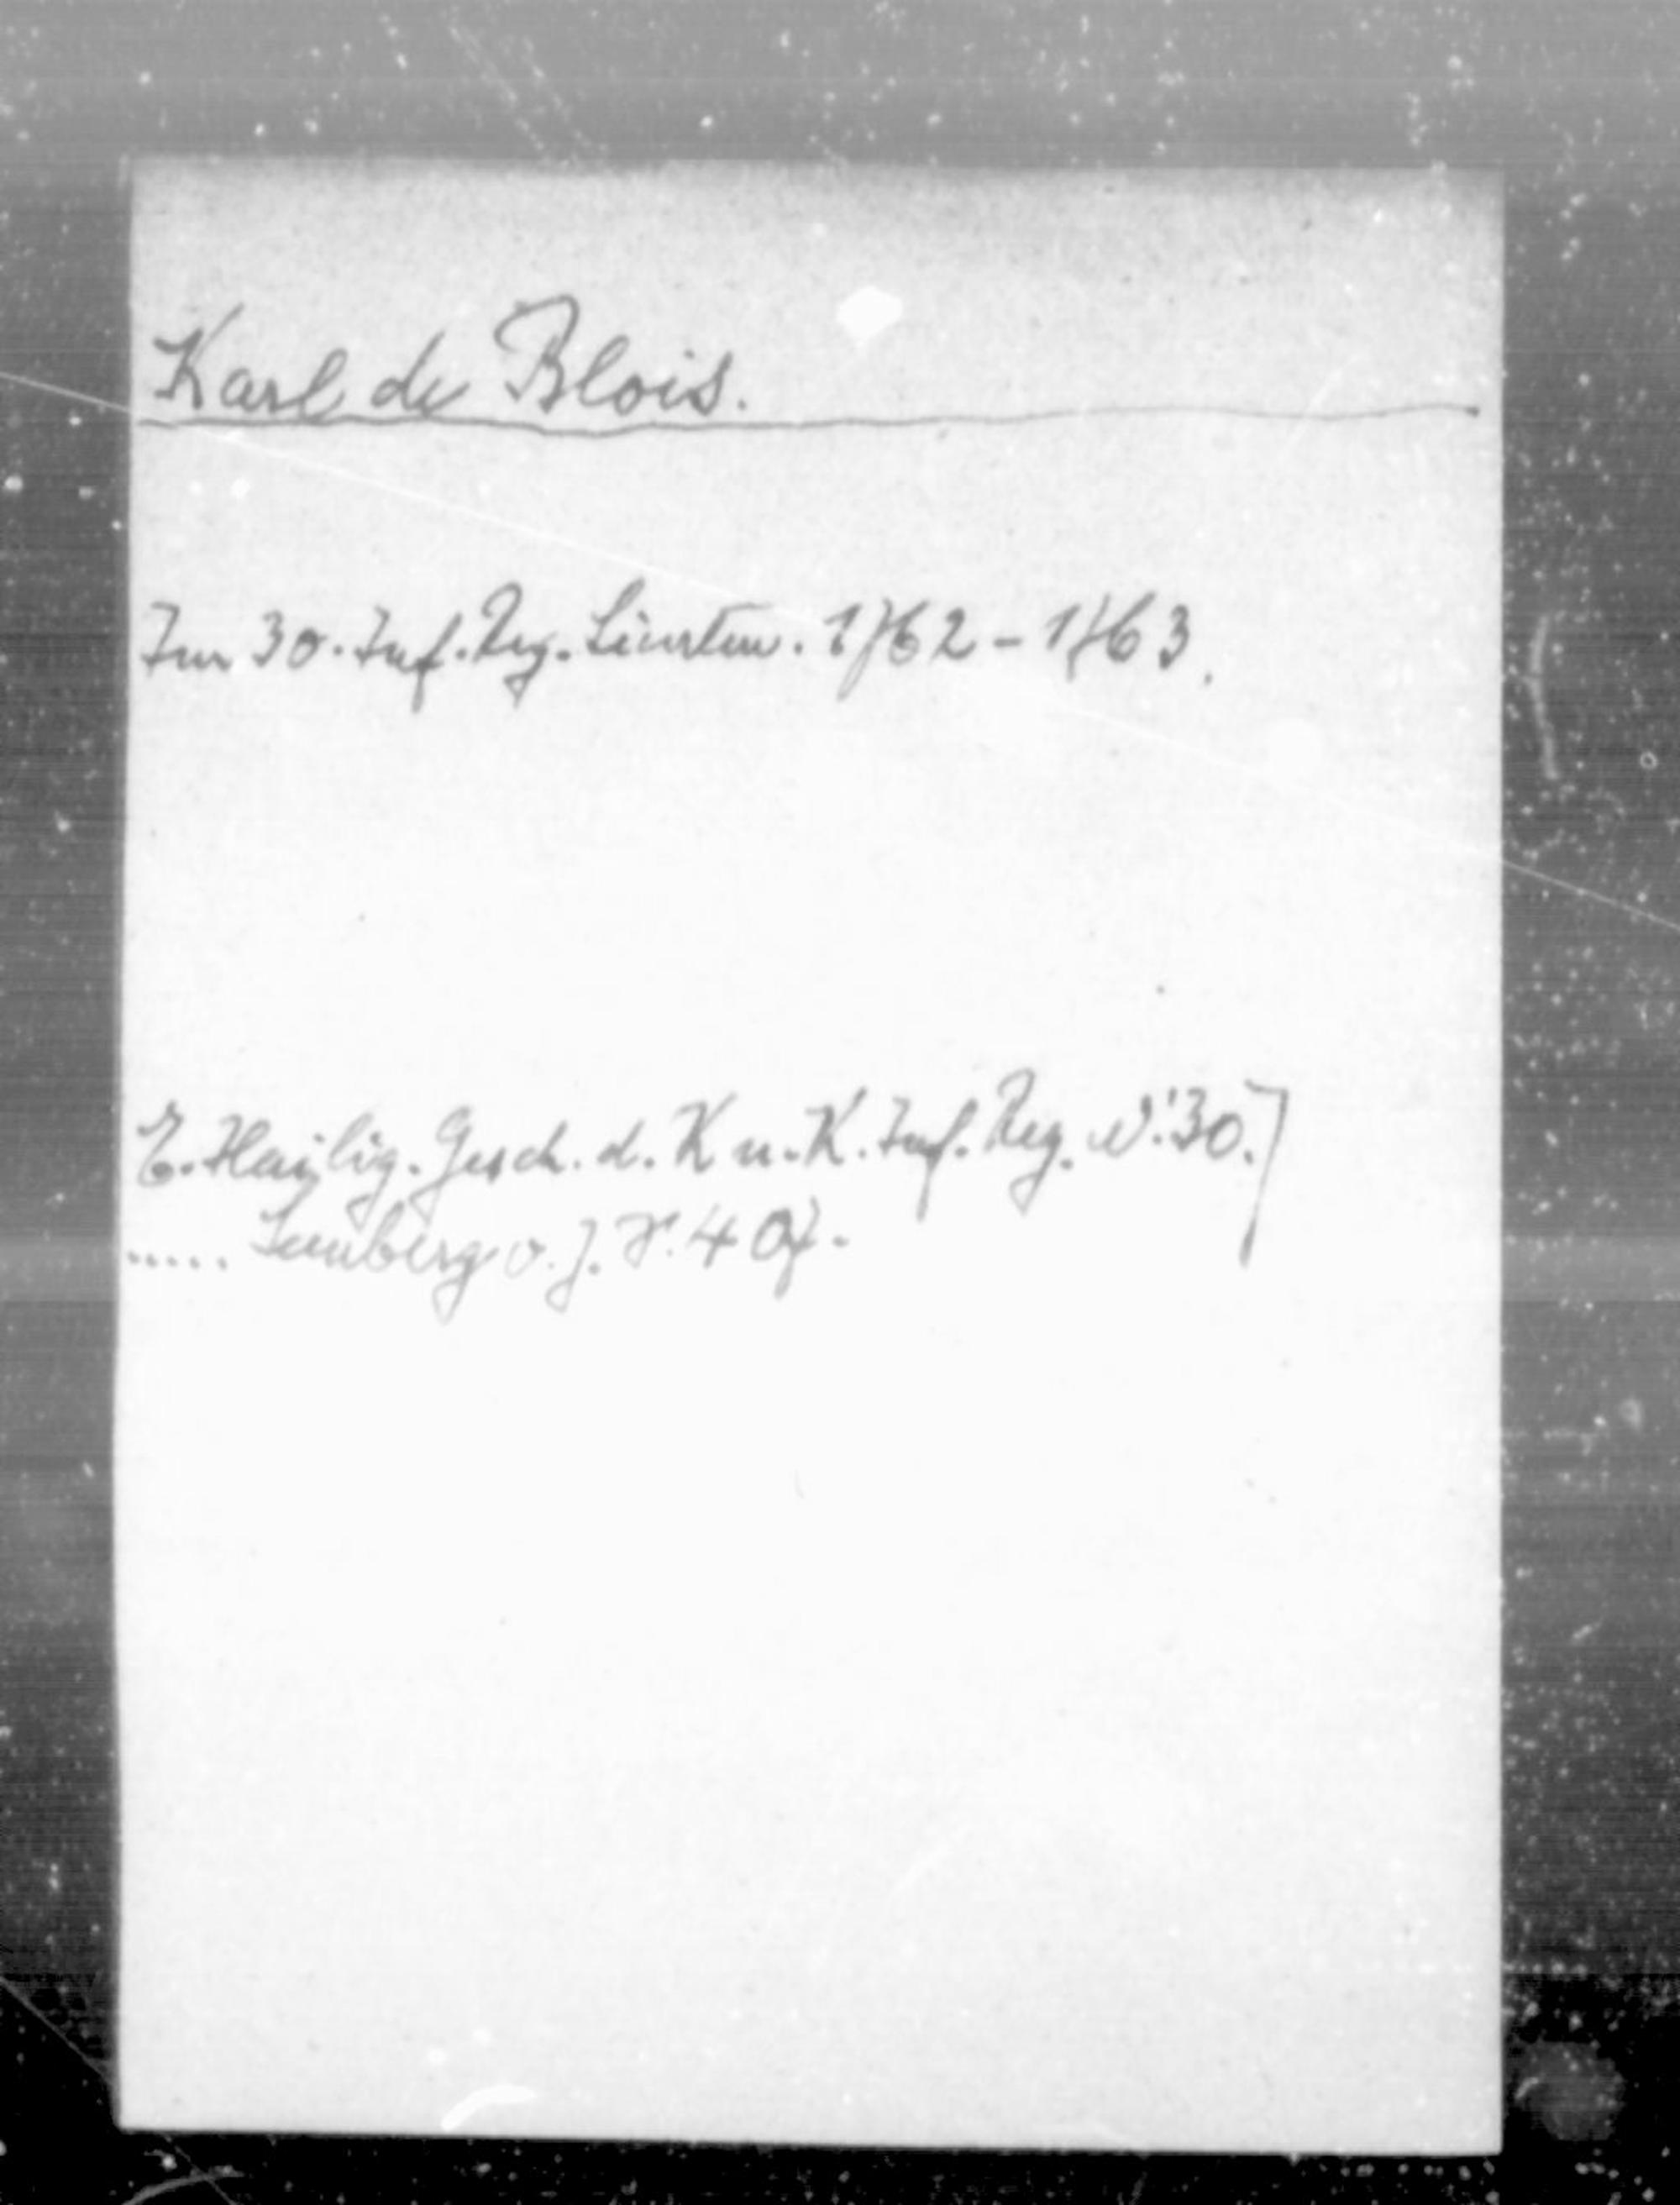 Karl de Blois.
Im 30. Inf. Reg. Lieuten. 1762 - 1763.
E. Hailig. Gesch. d. K u. K. Inf. Reg. N. 30.
..... Lemberg o. J. S. 4